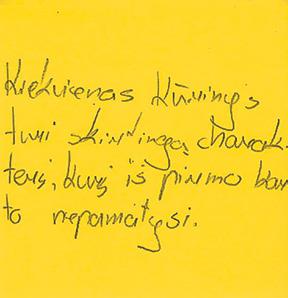 Kiekvienas kūrinys
turi skirtingą charak-
terį, kurį iš pirmo kar
to nepamatysi.